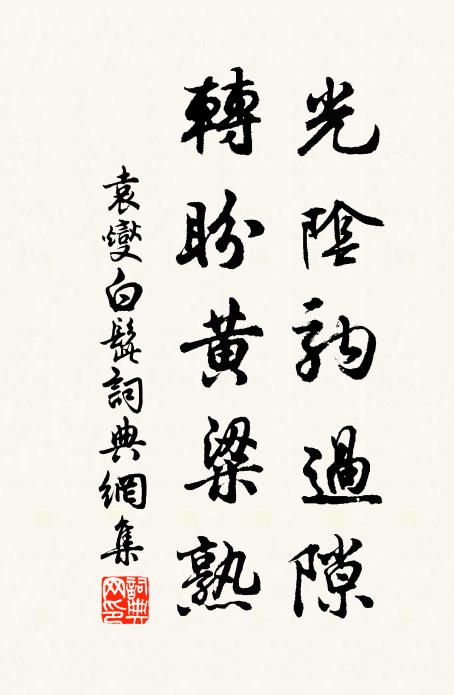 光陰駒過隙
轉盼黄粱熟
袁燮白髭詞典網集
詞典网印